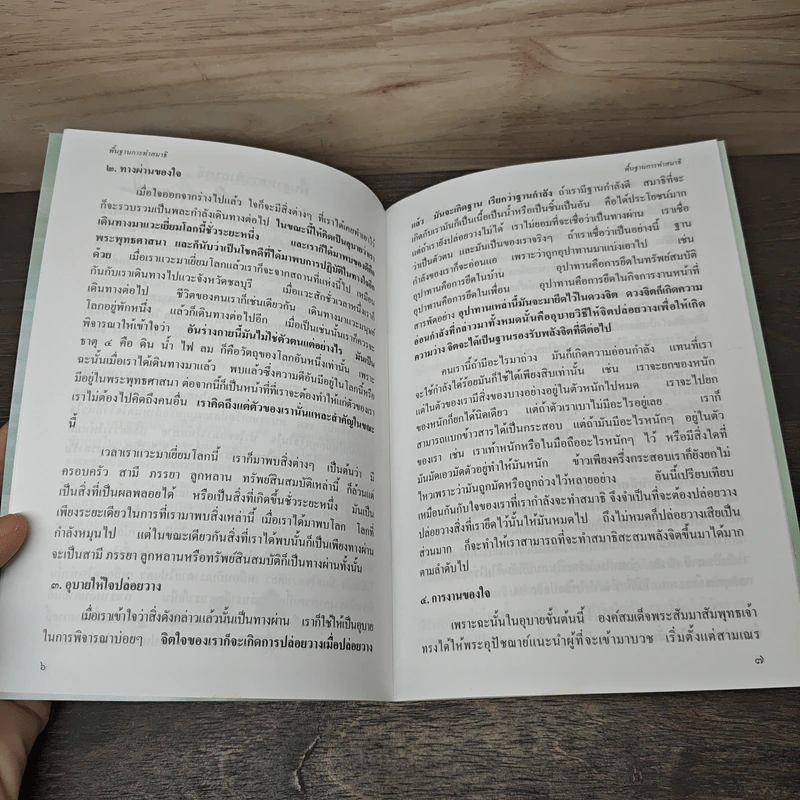 พื้นฐานการทำสมาธิ
๒. ทางผ่านของใจ
เมื่อใจออกจากร่างไปแล้ว ใจก็จะมีสิ่งต่างๆ ที่เราได้เคยทำเอาไว้
ก็จะรวบรวมเป็นพละกำลังเดินทางต่อไป ในขณะนี้ให้คิดเป็นอุบายว่าเรา
เดินทางมาแวะเยี่ยมโลกนี้ชั่วระยะหนึ่ง และเราก็ได้มาพบของดีคือ
พระพุทธศาสนา และก็นับว่าเป็นโชคดีที่ได้มาพบการปฏิบัติในทางจิต
ด้วย เมื่อเราแวะมาเยี่ยมโลกแล้วเราก็จะจากสถานที่แห่งนี้ไป เหมือน
กันกับเราเดินทางไปแวะจังหวัดชลบุรี เมื่อแวะสักชั่วเวลาหนึ่งเราก็
เดินทางต่อไป ชีวิตของคนเราก็เช่นเดียวกัน เดินทางมาแวะมนุษย์
โลกอยู่พักหนึ่ง แล้วก็เดินทางต่อไปอีก เมื่อเป็นเช่นนั้นเราก็ควรจะ
พิจารณาให้เข้าใจว่า อันร่างกายนี้มันไม่ใช่ตัวตนแต่อย่างไร มันเป็น
ธาตุ ๔ คือ ดิน น้ำ ไฟ ลม ก็คือวัตถุของโลกอันหนึ่งเท่านั้น เพราะ
ฉะนั้นเมื่อเราได้เดินทางมาแล้ว พบแล้วซึ่งความดีอันมีอยู่ในโลกนี้หรือ
มีอยู่ในพระพุทธศาสนา ต่อจากนี้ก็เป็นหน้าที่ที่เราจะต้องทำให้แก่ตัวของเรา
เราไม่ต้องไปคิดถึงคนอื่น เราคิดถึงแต่ตัวของเรานั่นแหละสำคัญในขณะ
นี้
เวลาเราแวะมาเยี่ยมโลกนี้ เราก็มาพบสิ่งต่างๆ เป็นต้นว่า มี
ครอบครัว สามี ภรรยา ลูกหลาน ทรัพย์สินสมบัติเหล่านี้ ก็ล้วนแต่
เป็นสิ่งที่เป็นผลพลอยได้ หรือเป็นสิ่งที่เกิดขึ้นชั่วระยะหนึ่ง มันเป็น
เพียงระยะเดียวในการที่เรามาพบสิ่งเหล่านี้ เมื่อเราได้มาพบโลก โลกที่
กำลังหมุนไป แต่ในขณะเดียวกันสิ่งที่เราได้พบนั้นก็เป็นเพียงทางผ่าน
จะเป็นสามี ภรรยา ลูกหลานหรือทรัพย์สินสมบัติก็เป็นทางผ่านทั้งนั้น
๓. อุบายให้ใจปล่อยวาง
เมื่อเราเข้าใจว่าสิ่งดังกล่าวแล้วนั้นเป็นทางผ่าน เราก็ใช้ให้เป็นอุบาย
ในการพิจารณาบ่อยๆ จิตใจของเราก็จะเกิดการปล่อยวางเมื่อปล่อยวาง
๖
พื้นฐานการทำสมาธิ
แล้ว มันจะเกิดฐาน เรียกว่าฐานกำลัง ถ้าเรามีฐานกำลังดี สมาธิที่จะ
เกิดกับเรามันก็เป็นเนื้อเป็นน้ำหรือเป็นชิ้นเป็นอัน คือได้ประโยชน์มาก
แต่ถ้าเรายังปล่อยวางไม่ได้ เราไม่ยอมที่จะเชื่อว่าเป็นทางผ่าน เราเชื่อ
ว่าเป็นตัวตน และมันเป็นของเราจริงๆ ถ้าเราเชื่อว่าเป็นอย่างนี้ ฐาน
กำลังของเราก็จะอ่อนแอ เพราะว่าถูกอุปาทานมาแบ่งเอาไป เช่น
อุปาทานคือการยึดในบ้าน อุปาทานคือการยึดในทรัพย์สมบัติ
อุปาทานคือการยึดในเพื่อน อุปาทานคือการยึดในกิจการงานหน้าที่
สารพัดอย่าง อุปาทานเหล่านี้มันจะมายึดไว้ในดวงจิต ดวงจิตก็เกิดความ
อ่อนกำลังที่กล่าวมาทั้งหมดนั้นคืออุบายวิธีให้จิตปล่อยวางเพื่อให้เกิด
ความว่าง จิตจะได้เป็นฐานรองรับพลังจิตที่ดีต่อไป
คนเรานี้ถ้ามีอะไรมาถ่วง มันก็เกิดความอ่อนกำลัง แทนที่เรา
จะใช้กำลังได้ร้อยมันก็ใช้ได้เพียงสิบเท่านั้น เช่น เราจะยกของหนัก
แต่ในตัวของเรามีสิ่งของบางอย่างอยู่ในตัวหนักไปหมด เราจะไปยก
ของหนักก็ยกได้นิดเดียว แต่ถ้าตัวเราเบาไม่มีอะไรอยู่เลย เราก็
สามารถแบกข้าวสารได้เป็นกระสอบ แต่ถ้ามันมีอะไรหนักๆ อยู่ในตัว
ของเรา เช่น เราเท้าหนักหรือในมือถืออะไรหนักๆ ไว้ หรือมีสิ่งใดที่
มันมัดเอวมัดตัวอยู่ทำให้มันหนัก ข้าวเพียงครึ่งกระสอบเราก็ยังยกไม่
ไหวเพราะว่ามันถูกมัดหรือถูกถ่วงไว้หลายอย่าง อันนี้เปรียบเทียบ
เหมือนกันกับใจของเราที่เรากำลังจะทำสมาธิ จึงจำเป็นที่จะต้องปล่อยวาง
ปล่อยวางสิ่งที่เรายึดไว้นั้นให้มันหมดไป ถึงไม่หมดก็ปล่อยวางเสียเป็น
ส่วนมาก ก็จะทำให้เราสามารถที่จะทำสมาธิสะสมพลังจิตขึ้นมาได้มาก
ตามลำดับไป
๔. การงานของใจ
เพราะฉะนั้นในอุบายขั้นต้นนี้ องค์สมเด็จพระสัมมาสัมพุทธเจ้า
ทรงได้ให้พระอุปัชฌาย์แนะนำผู้ที่จะเข้ามาบวช เริ่มตั้งแต่สามเณร
๗